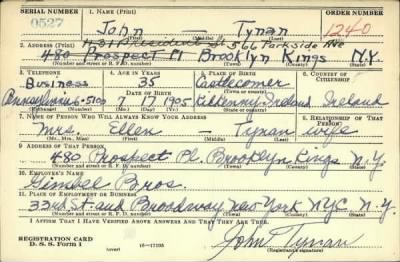 SERIAL NUMBER 1. NAME (Print) ORDER NUMBER
0527 John — Tynan 1240
(First) (Middle) (Last)
431 President St 566 Parkside Ave
2. ADDRESS (Print)
480 Prospect Pl Brooklyn Kings N.Y.
(Number and street or R. F. D. number) (Town) (County) (State)
3. TELEPHONE 4. AGE IN YEARS 5. PLACE OF BIRTH 6. COUNTRY OF CITIZENSHIP
Business 35 Castlecomer
DATE OF BIRTH
Pennsylvania-5100 7 17 1905 Kilkenny, Ireland Ireland
(Exchange) (Number) (Mo.) (Day) (Yr.) (State or country)
7. NAME OF PERSON WHO WILL ALWAYS KNOW YOUR ADDRESS 8. RELATIONSHIP OF THAT PERSON
Mrs. Ellen — Tynan wife
(Mr., Mrs., Miss) (First) (Middle) (Last)
9. ADDRESS OF THAT PERSON
480 Prospect Pl. Brooklyn Kings N.Y.
(Number and street or R. F. D. number) (Town) (County) (State)
10. EMPLOYER'S NAME
Gimbel Bros.
11. PLACE OF EMPLOYMENT OR BUSINESS
33rd St. and Broadway New York NYC N.Y.
(Number and street or R. F. D. number) (Town) (County) (State)
I AFFIRM THAT I HAVE VERIFIED ABOVE ANSWERS AND THAT THEY ARE TRUE.
REGISTRATION CARD
D. S. S. Form 1 (over) 16—17105 John Tynan
(Registrant's signature)